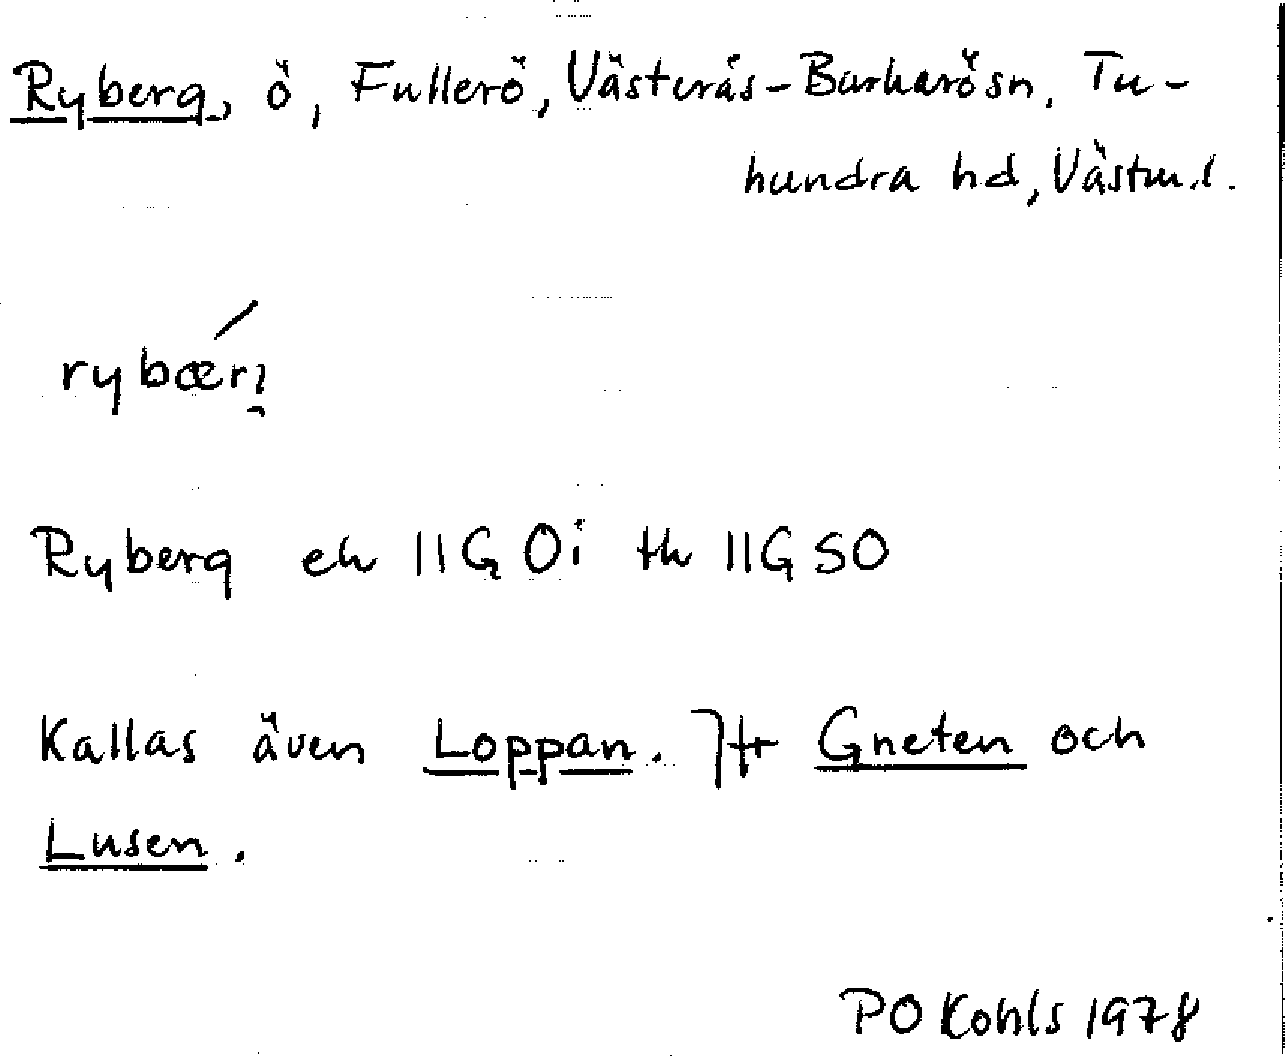 Ryberg, ö, Fullerö, Västerås-Barkarösn, Tu-
hundra hd, Västm.l.
Ryberg ek 11G 0i tk 11G SO
Kallas även Loppan. Jfr Gneten och
Lusen.
PO Kohls 1978